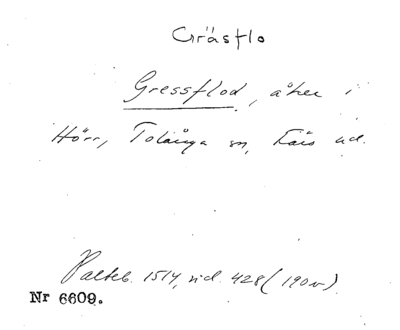 Gräsflo
Gressflod, åker i
Hörr, Tolånga sn, Färs hd.
Palteb. 1514, sid. 428 (190v)
Nr 6609.